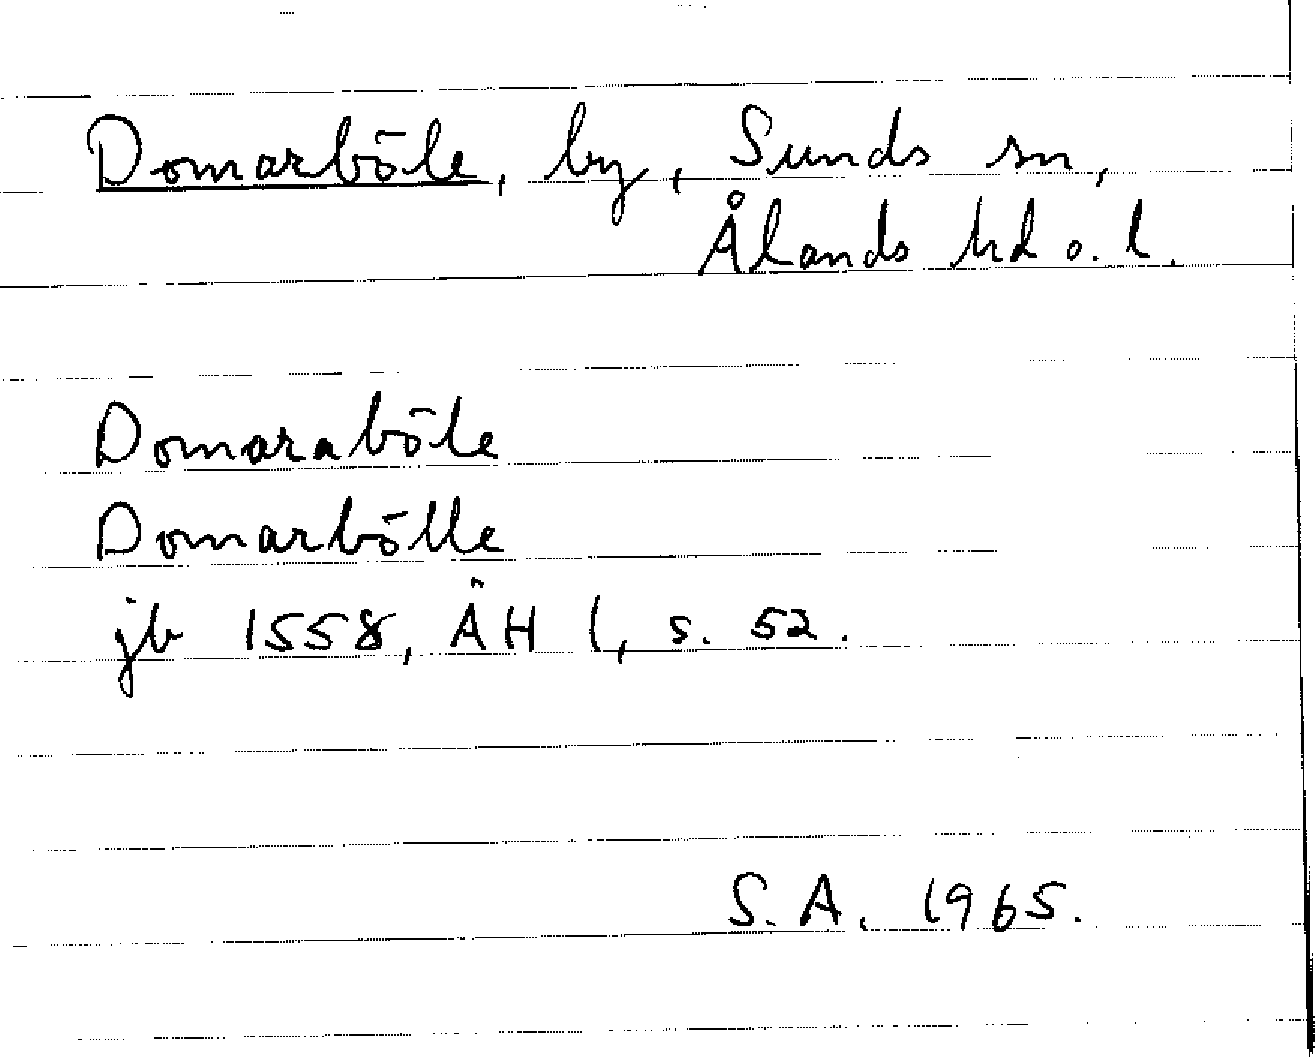 Domarböle, by, Sunds sn,
Ålands hd o. l.
Domaraböle
Domarbölle
jb 1558, ÅH l, s. 52.
S.A. 1965.